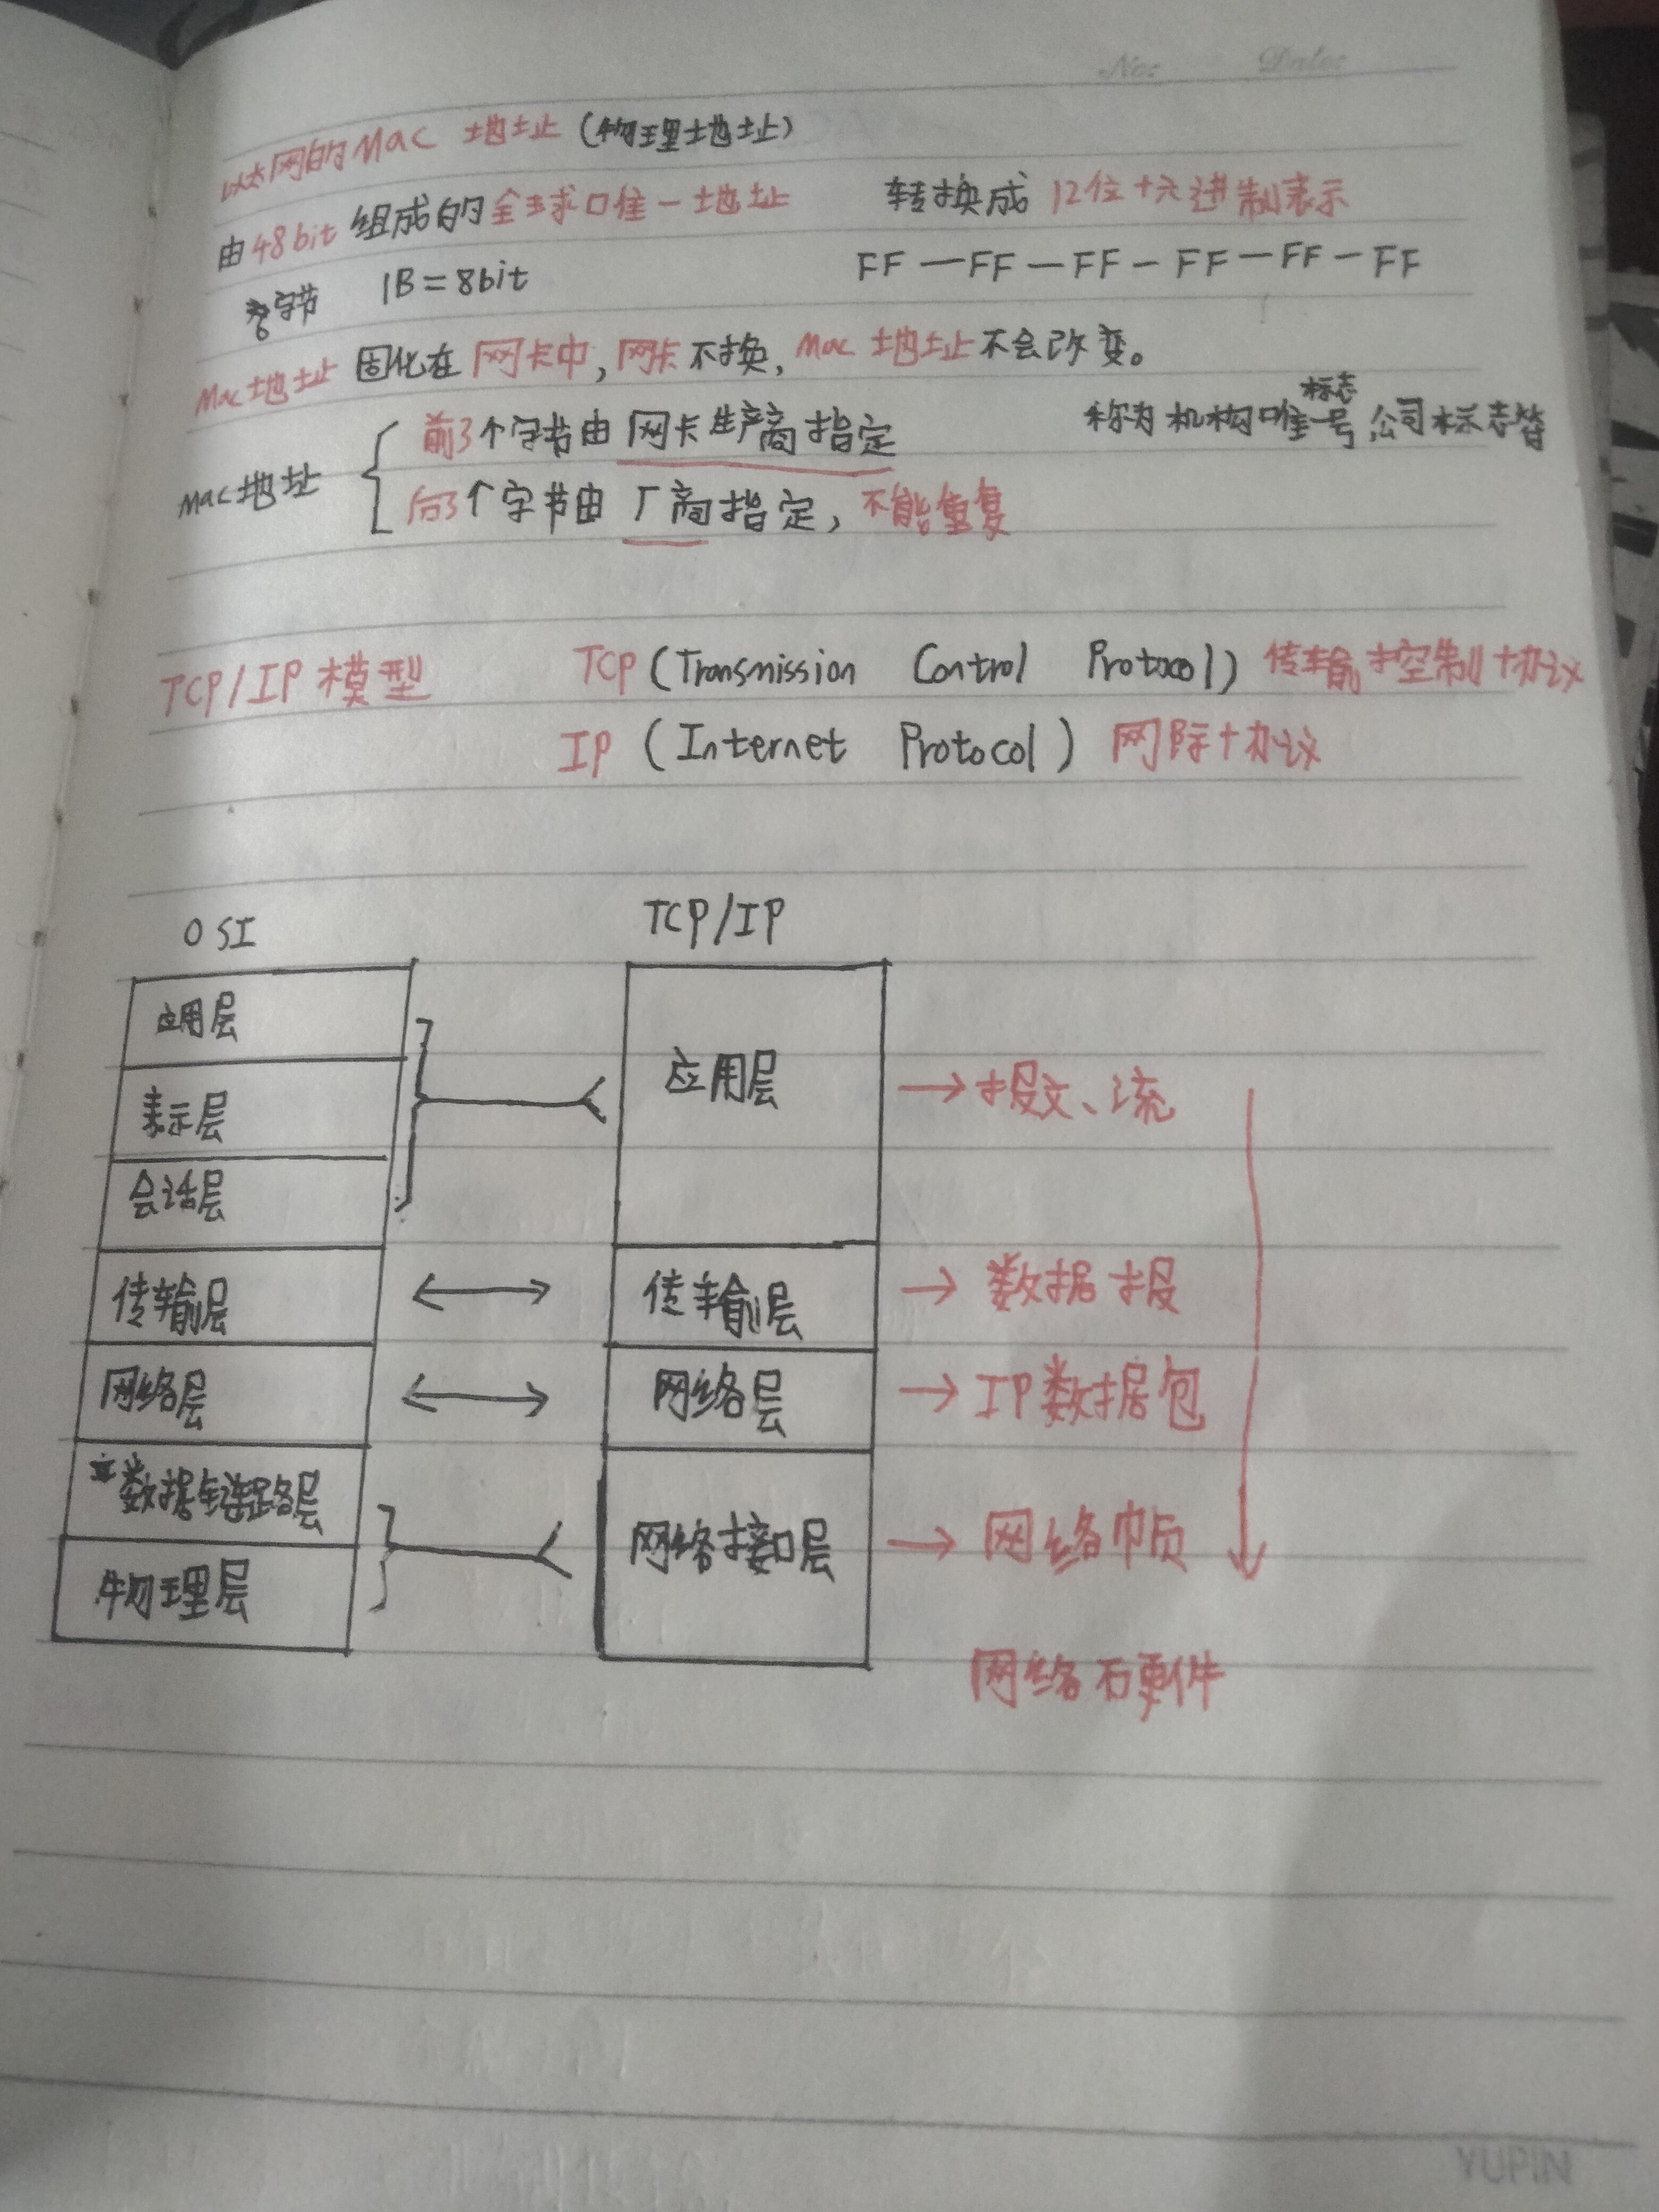 No: Date:
以太网的Mac 地址(物理地址)
由48bit组成的全球唯一地址 转换成 12位十六进制表示
字节 1B=8bit FF—FF—FF—FF—FF—FF
Mac地址固化在网卡中,网卡不换,Mac 地址不会改变。
标志
前3个字节由 网卡生产商指定 称为机构唯一号,公司标志
Mac地址
后3个字节由 厂商指定,不能重复
TCP/IP 模型 TCP(Transmission Control Protocol) 传输控制协议
IP (Internet Protocol) 网际协议
OSI TCP/IP
应用层
表示层 应用层 →报文、流
会话层
传输层 传输层 →数据报
网络层 网络层 →IP数据包
数据链路层
网络接口层 →网络帧
物理层
网络硬件
YUPIN